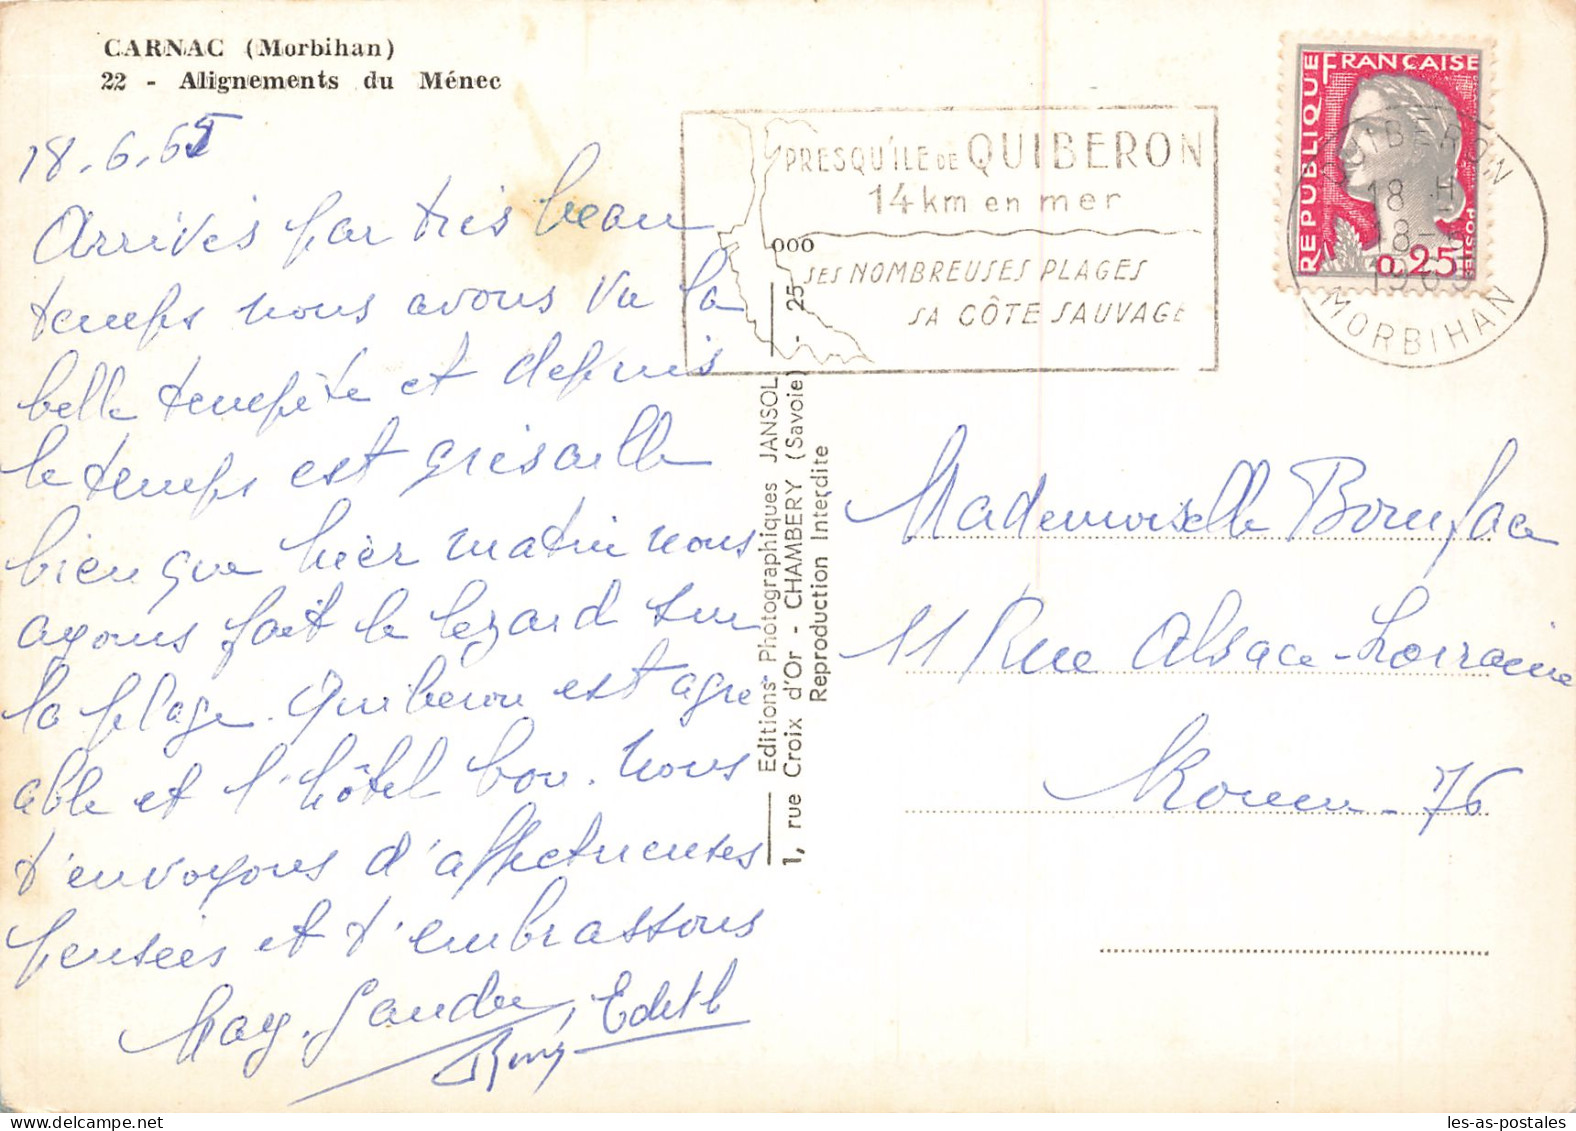 CARNAC (Morbihan)
22 - Alignements du Ménec
18.6.65
Arrivés par très beau
temps nous avons vu la
belle tempête et depuis
le temps est grisaille
bien que hier matin nous
ayons fait le lézard sur
la plage. Quiberon est agre
able et l'hôtel bon. Nous
t'envoyons d'affectueuses
pensées et t'embrassons
May. Edith
PRESQU'ILE DE QUIBERON
14 km en mer
SES NOMBREUSES PLAGES
SA CÔTE SAUVAGE
REPUBLIQUE FRANÇAISE
POSTES
0,25
QUIBERON
18 H
18-6
1965
MORBIHAN
Editions Photographiques JANSOL - 25 000
1, rue Croix d'Or - CHAMBERY (Savoie)
Reproduction Interdite
Mademoiselle Boniface
11 Rue Alsace-Lorraine
Rouen - 76
les-as-postales